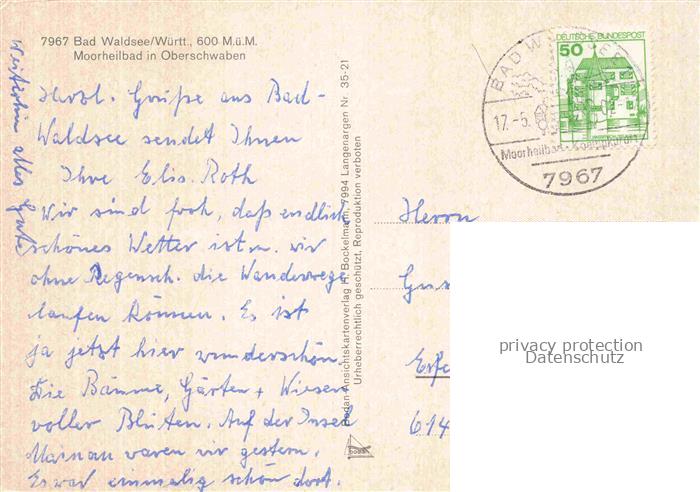 7967 Bad Waldsee/Württ., 600 M.ü.M.
Moorheilbad in Oberschwaben
Herzl. Grüße aus Bad-
Waldsee sendet Ihnen
Ihre Elis. Roth
Wir sind froh, daß endlich
schönes Wetter ist u. wir
ohne Regensch. die Wanderwege
laufen können. Es ist
ja jetzt hier wunderschön.
Die Bäume, Gärten + Wiesen
voller Blüten. Auf der Insel
Mainau waren wir gestern.
Es war einmalig schön dort.
Weiterhin alles Gute
Bodan-Ansichtskartenverlag H. Bockelmann, 7994 Langenargen Nr. 35-21
Urheberrechtlich geschützt, Reproduktion verboten
DEUTSCHE BUNDESPOST
50
BAD W
17.-5.
Moorheilbad
7967
Herrn
Gus
614
privacy protection
Datenschutz